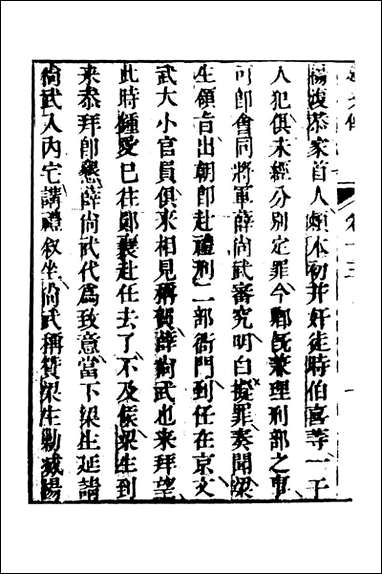 楊復恭家首人賴本初并奸徒時伯喜等一干
人犯俱未經分別定罪今鄭既兼理刑部之事
可卽會同將軍薛尚武審究明白擬罪奏聞梁
生領旨出朝卽赴禮刑二部衙門到任在京文
武大小官員俱來相見稱賀薛尚武也来拜望
此時鍾愛已往鄖襄赴任去了不及候梁生到
来恭拜卽懇薛尚武代爲致意當下梁生延請
尚武入内宅講禮叙坐尚武稱贊梁生勦滅楊